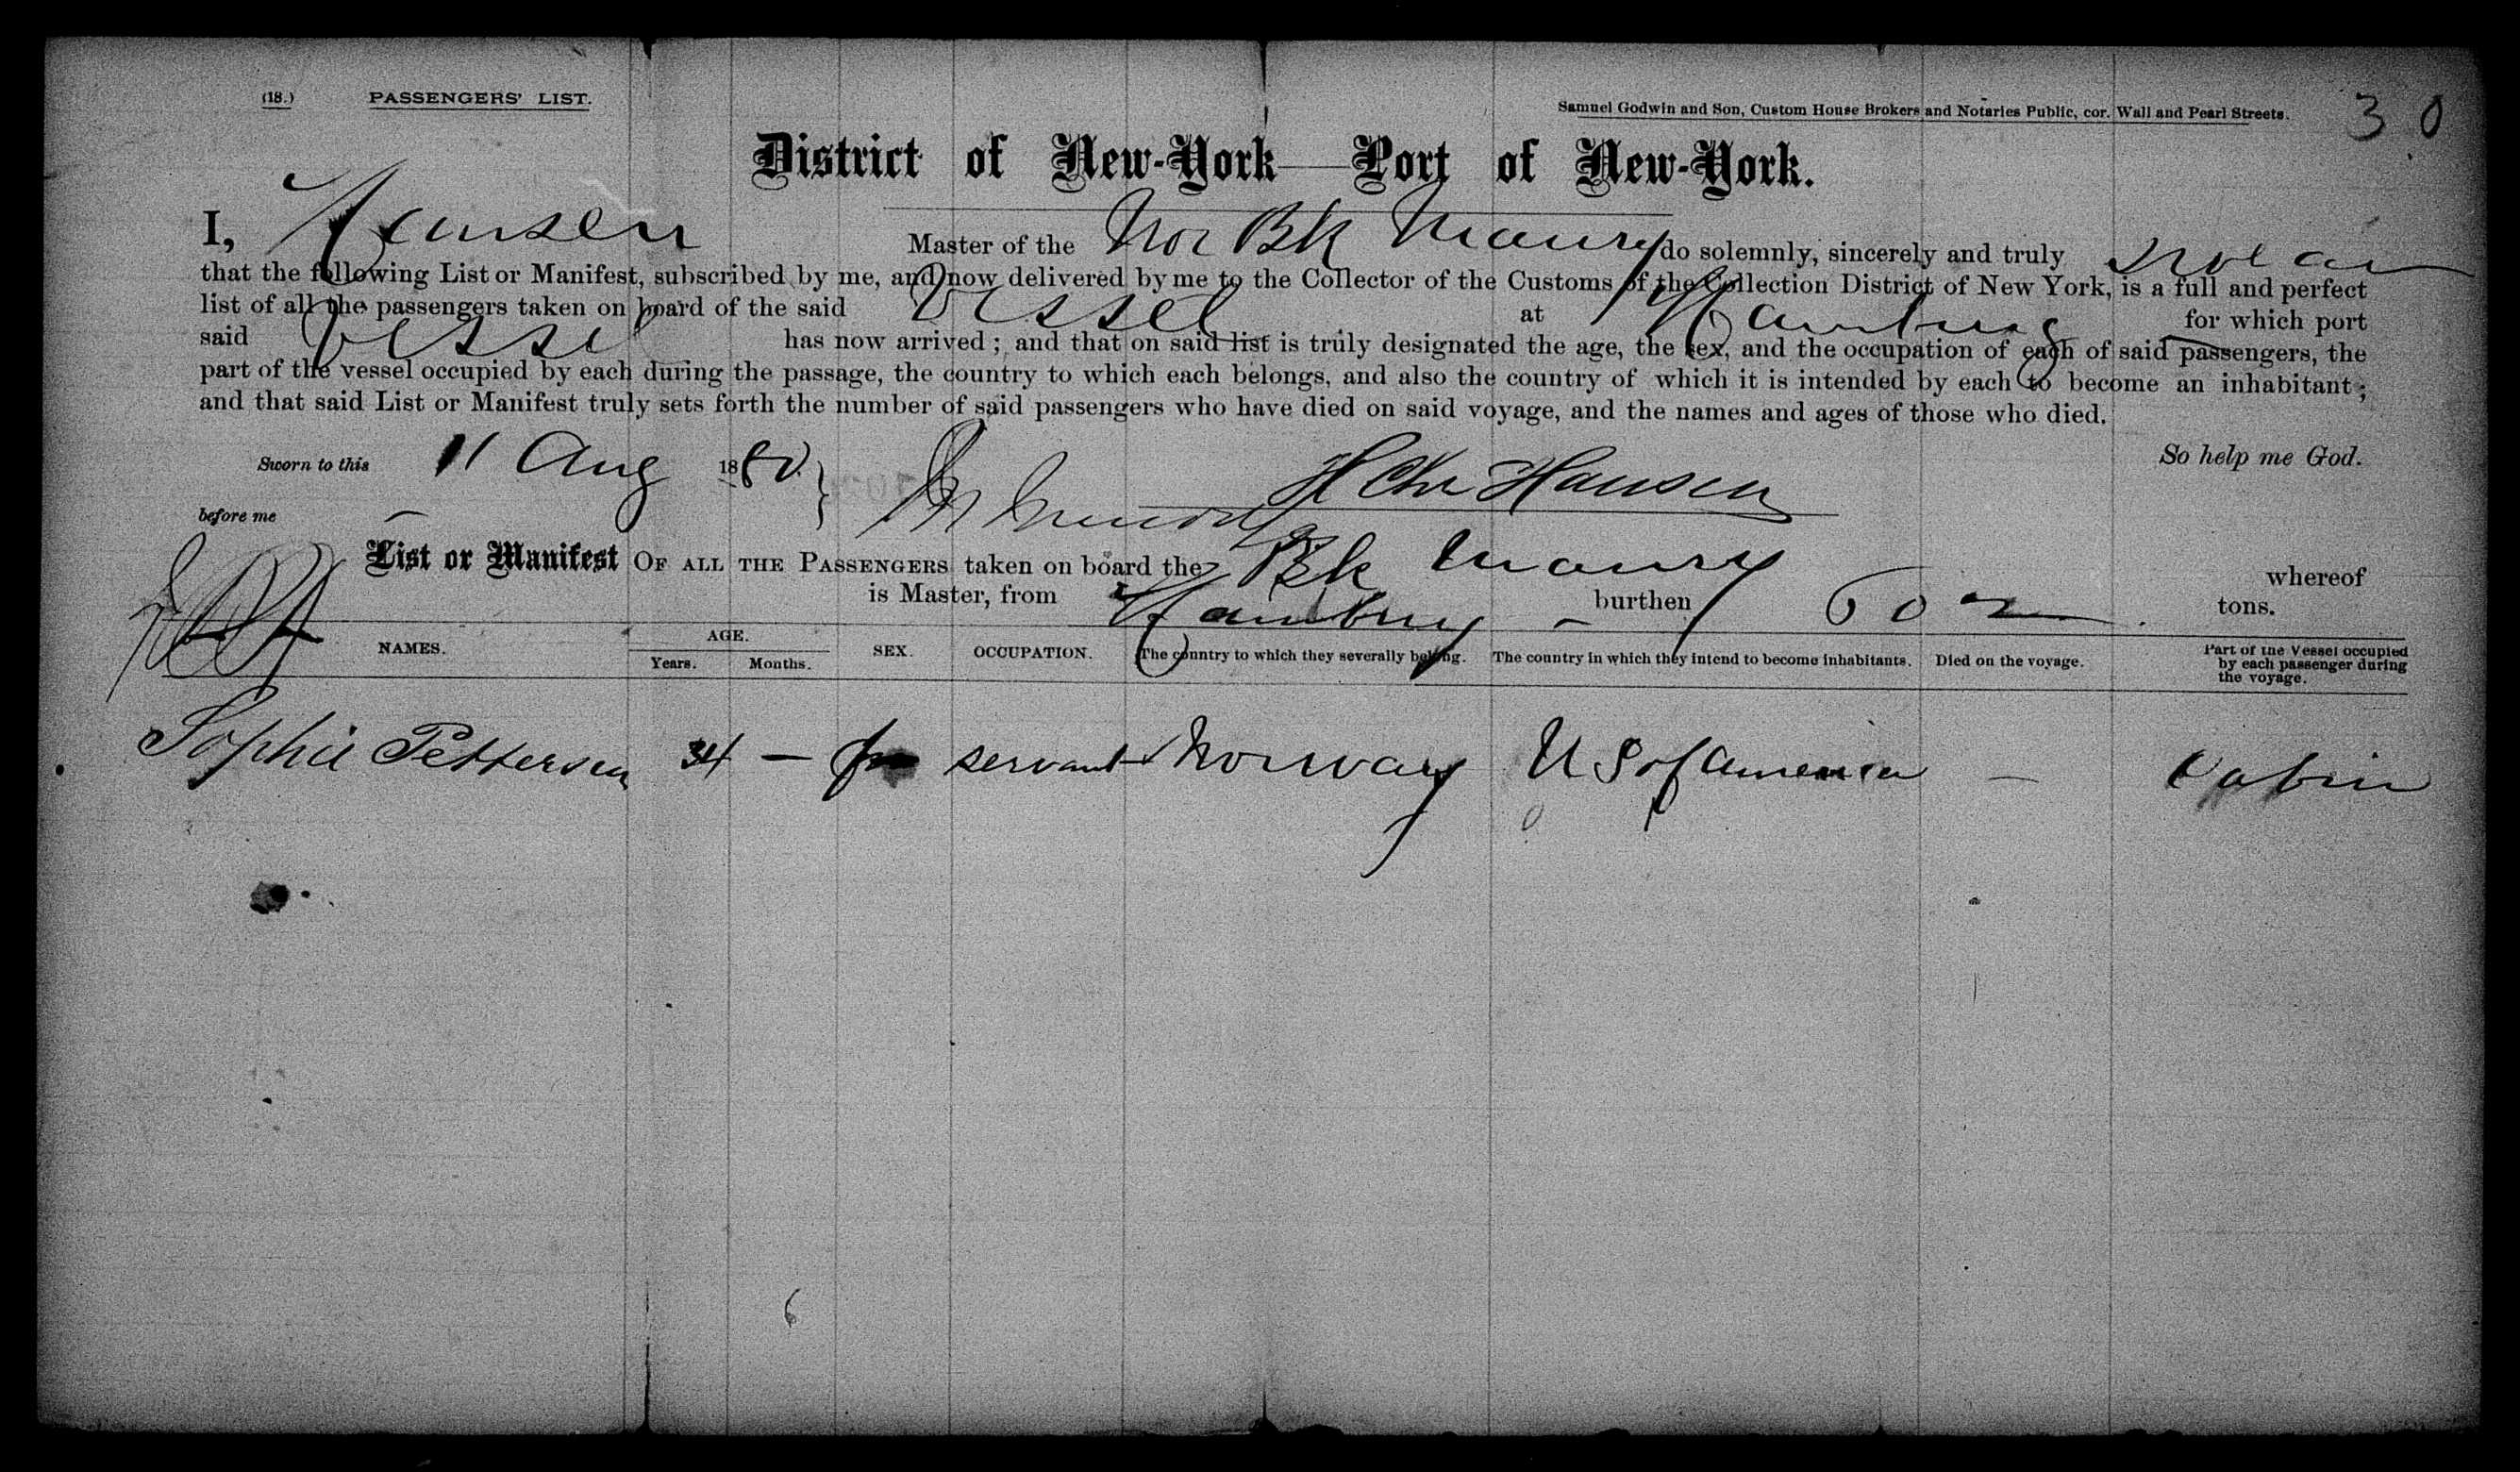 (18.) PASSENGERS' LIST.
Samuel Godwin and Son, Custom House Brokers and Notaries Public, cor. Wall and Pearl Streets. 30
District of New-York—Port of New-York.
I, Hansen Master of the Nor Bk Maury do solemnly, sincerely and truly swear
that the following List or Manifest, subscribed by me, and now delivered by me to the Collector of the Customs of the Collection District of New York, is a full and perfect
list of all the passengers taken on board of the said Vessel at Hamburg for which port
said Vessel has now arrived ; and that on said list is truly designated the age, the sex, and the occupation of each of said passengers, the
part of the vessel occupied by each during the passage, the country to which each belongs, and also the country of which it is intended by each to become an inhabitant ;
and that said List or Manifest truly sets forth the number of said passengers who have died on said voyage, and the names and ages of those who died.
Sworn to this 11 Aug 1880. H Chr Hansen So help me God.
before me
List or Manifest OF ALL THE PASSENGERS taken on board the Bk Maury whereof
is Master, from Hamburg burthen 602 tons.
NAMES. AGE. Years. Months. SEX. OCCUPATION. The country to which they severally belong. The country in which they intend to become inhabitants. Died on the voyage. Part of the Vessel occupied by each passenger during the voyage.
Sophie Pettersen 34 — f servant Norway U S of America — Cabin
6